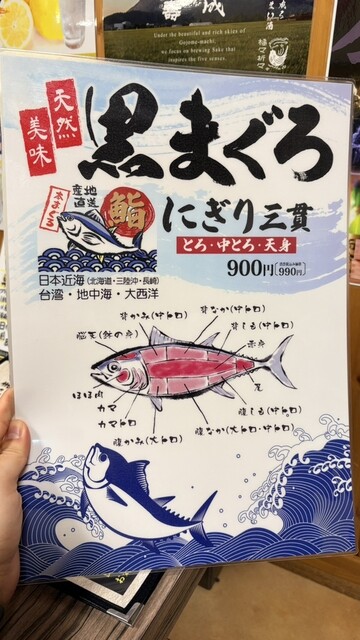 Under the beautiful and rich skies of
Gojome-machi,
we focus on brewing Sake that
inspires the five senses.
天然
美味
黒まぐろ
本まぐろ
産地
直送
鮨
にぎり三貫
とろ・中とろ・天身
900円
990円
日本近海(北海道・三陸沖・長崎)
台湾・地中海・大西洋
背かみ(中トロ)
背なか(中トロ)
脳天(鉢の身)
背しも(中トロ)
赤身
尾
ほほ肉
カマ
カマトロ
腹しも(中トロ)
腹かみ(大トロ)
腹なか(大トロ・中トロ)